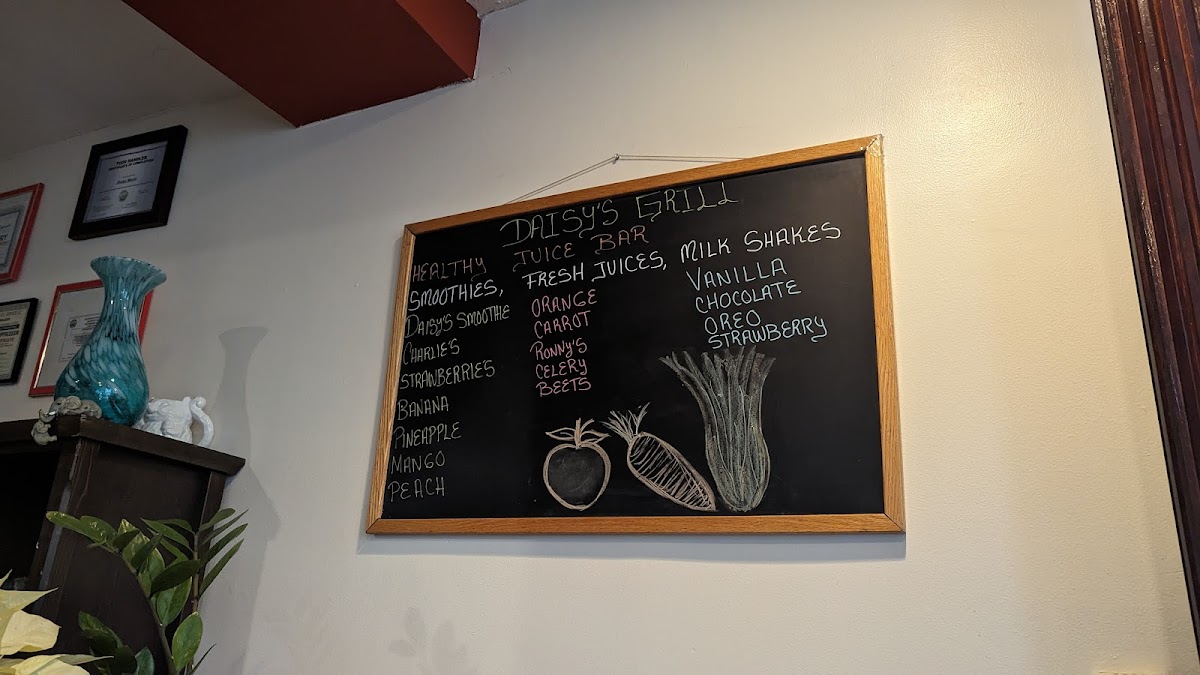 DAISY'S GRILL
HEALTHY JUICE BAR
SMOOTHIES, FRESH JUICES, MILK SHAKES
DAISY'S SMOOTHIE
CHARLIE'S
STRAWBERRIE'S
BANANA
PINEAPPLE
MANGO
PEACH
ORANGE
CARROT
RONNY'S
CELERY
BEETS
VANILLA
CHOCOLATE
OREO
STRAWBERRY